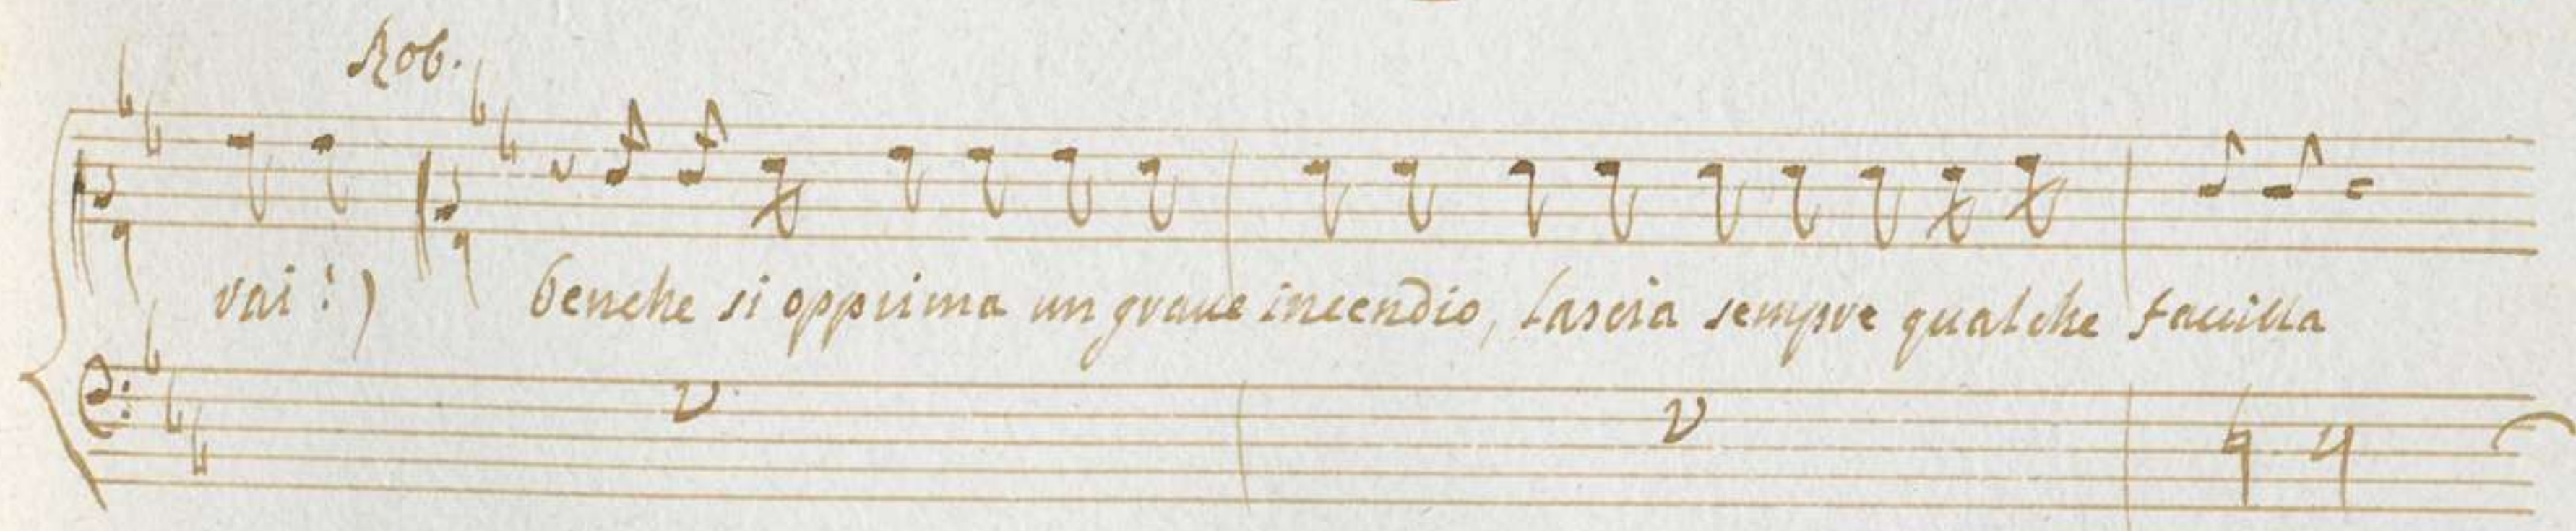 Rob.
vai!) benche si opprima un graue incendio, lascia sempre qualche fauilla